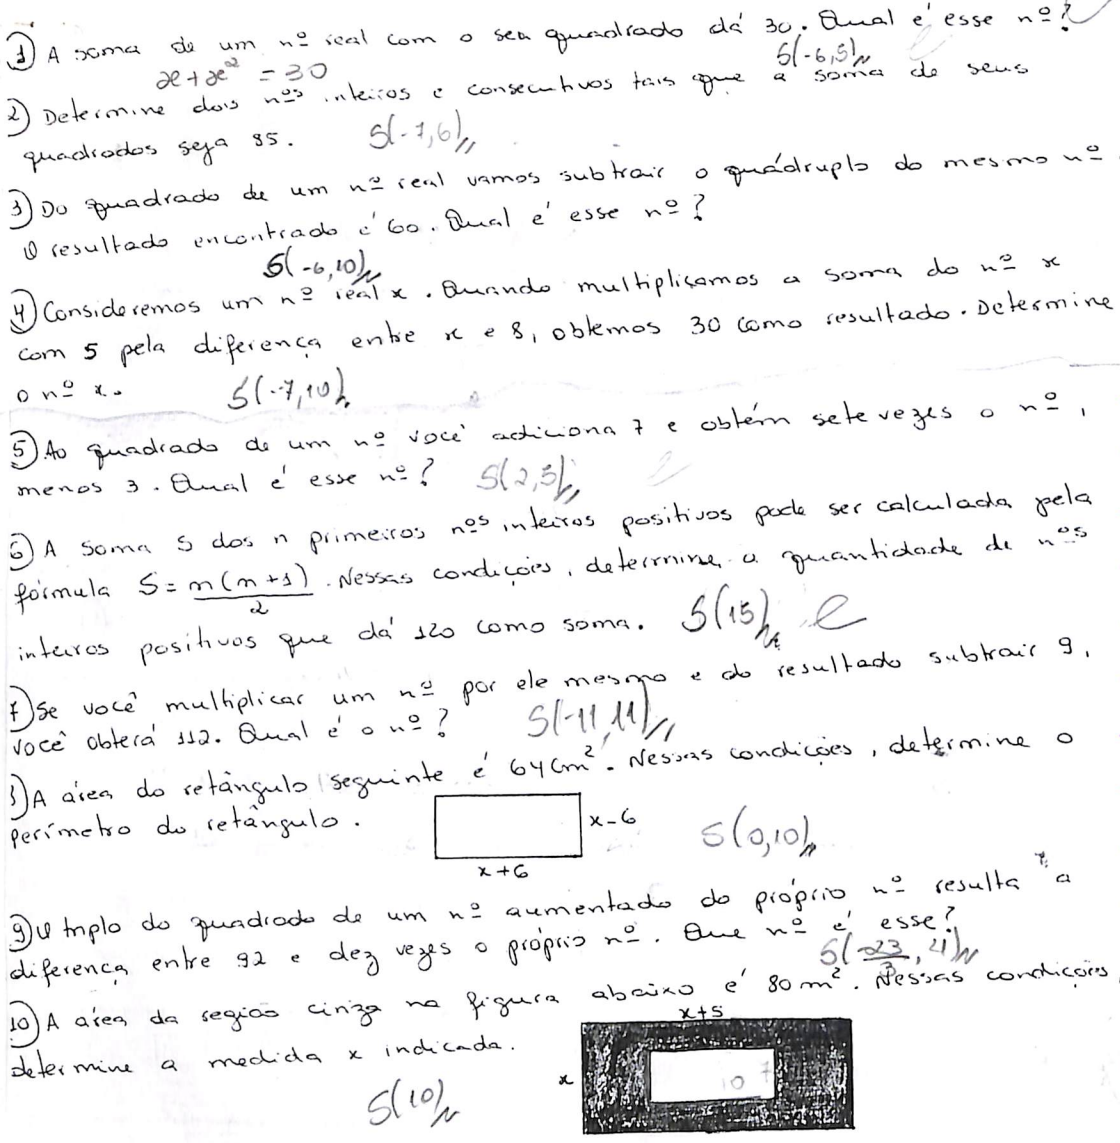 1) A soma de um nº real com o seu quadrado dá 30. Qual é esse nº?
x + x² = 30 S(-6,5)
2) Determine dois nºs inteiros e consecutivos tais que a soma de seus
quadrados seja 85. S(-7,6)
3) Do quadrado de um nº real vamos subtrair o quádruplo do mesmo nº
O resultado encontrado é 60. Qual é esse nº?
S(-6,10)
4) Consideremos um nº real x. Quando multiplicamos a soma do nº x
com 5 pela diferença entre x e 8, obtemos 30 como resultado. Determine
o nº x. S(-7,10)
5) Ao quadrado de um nº você adiciona 7 e obtém sete vezes o nº,
menos 3. Qual é esse nº? S(2,5)
6) A soma S dos n primeiros nºs inteiros positivos pode ser calculada pela
fórmula S = n(n+1)/2. Nessas condições, determine a quantidade de nºs
inteiros positivos que dá 120 como soma. S(15)
7) Se você multiplicar um nº por ele mesmo e do resultado subtrair 9,
você obterá 112. Qual é o nº? S(-11,11)
8) A área do retângulo seguinte é 64cm². Nessas condições, determine o
perímetro do retângulo. x-6 S(0,10)
x+6
9) O triplo do quadrado de um nº aumentado do próprio nº resulta a
diferença entre 92 e dez vezes o próprio nº. Que nº é esse?
S(-23/3, 4)
10) A área da região cinza na figura abaixo é 80m². Nessas condições
x+5
determine a medida x indicada.
x 10 7
S(10)